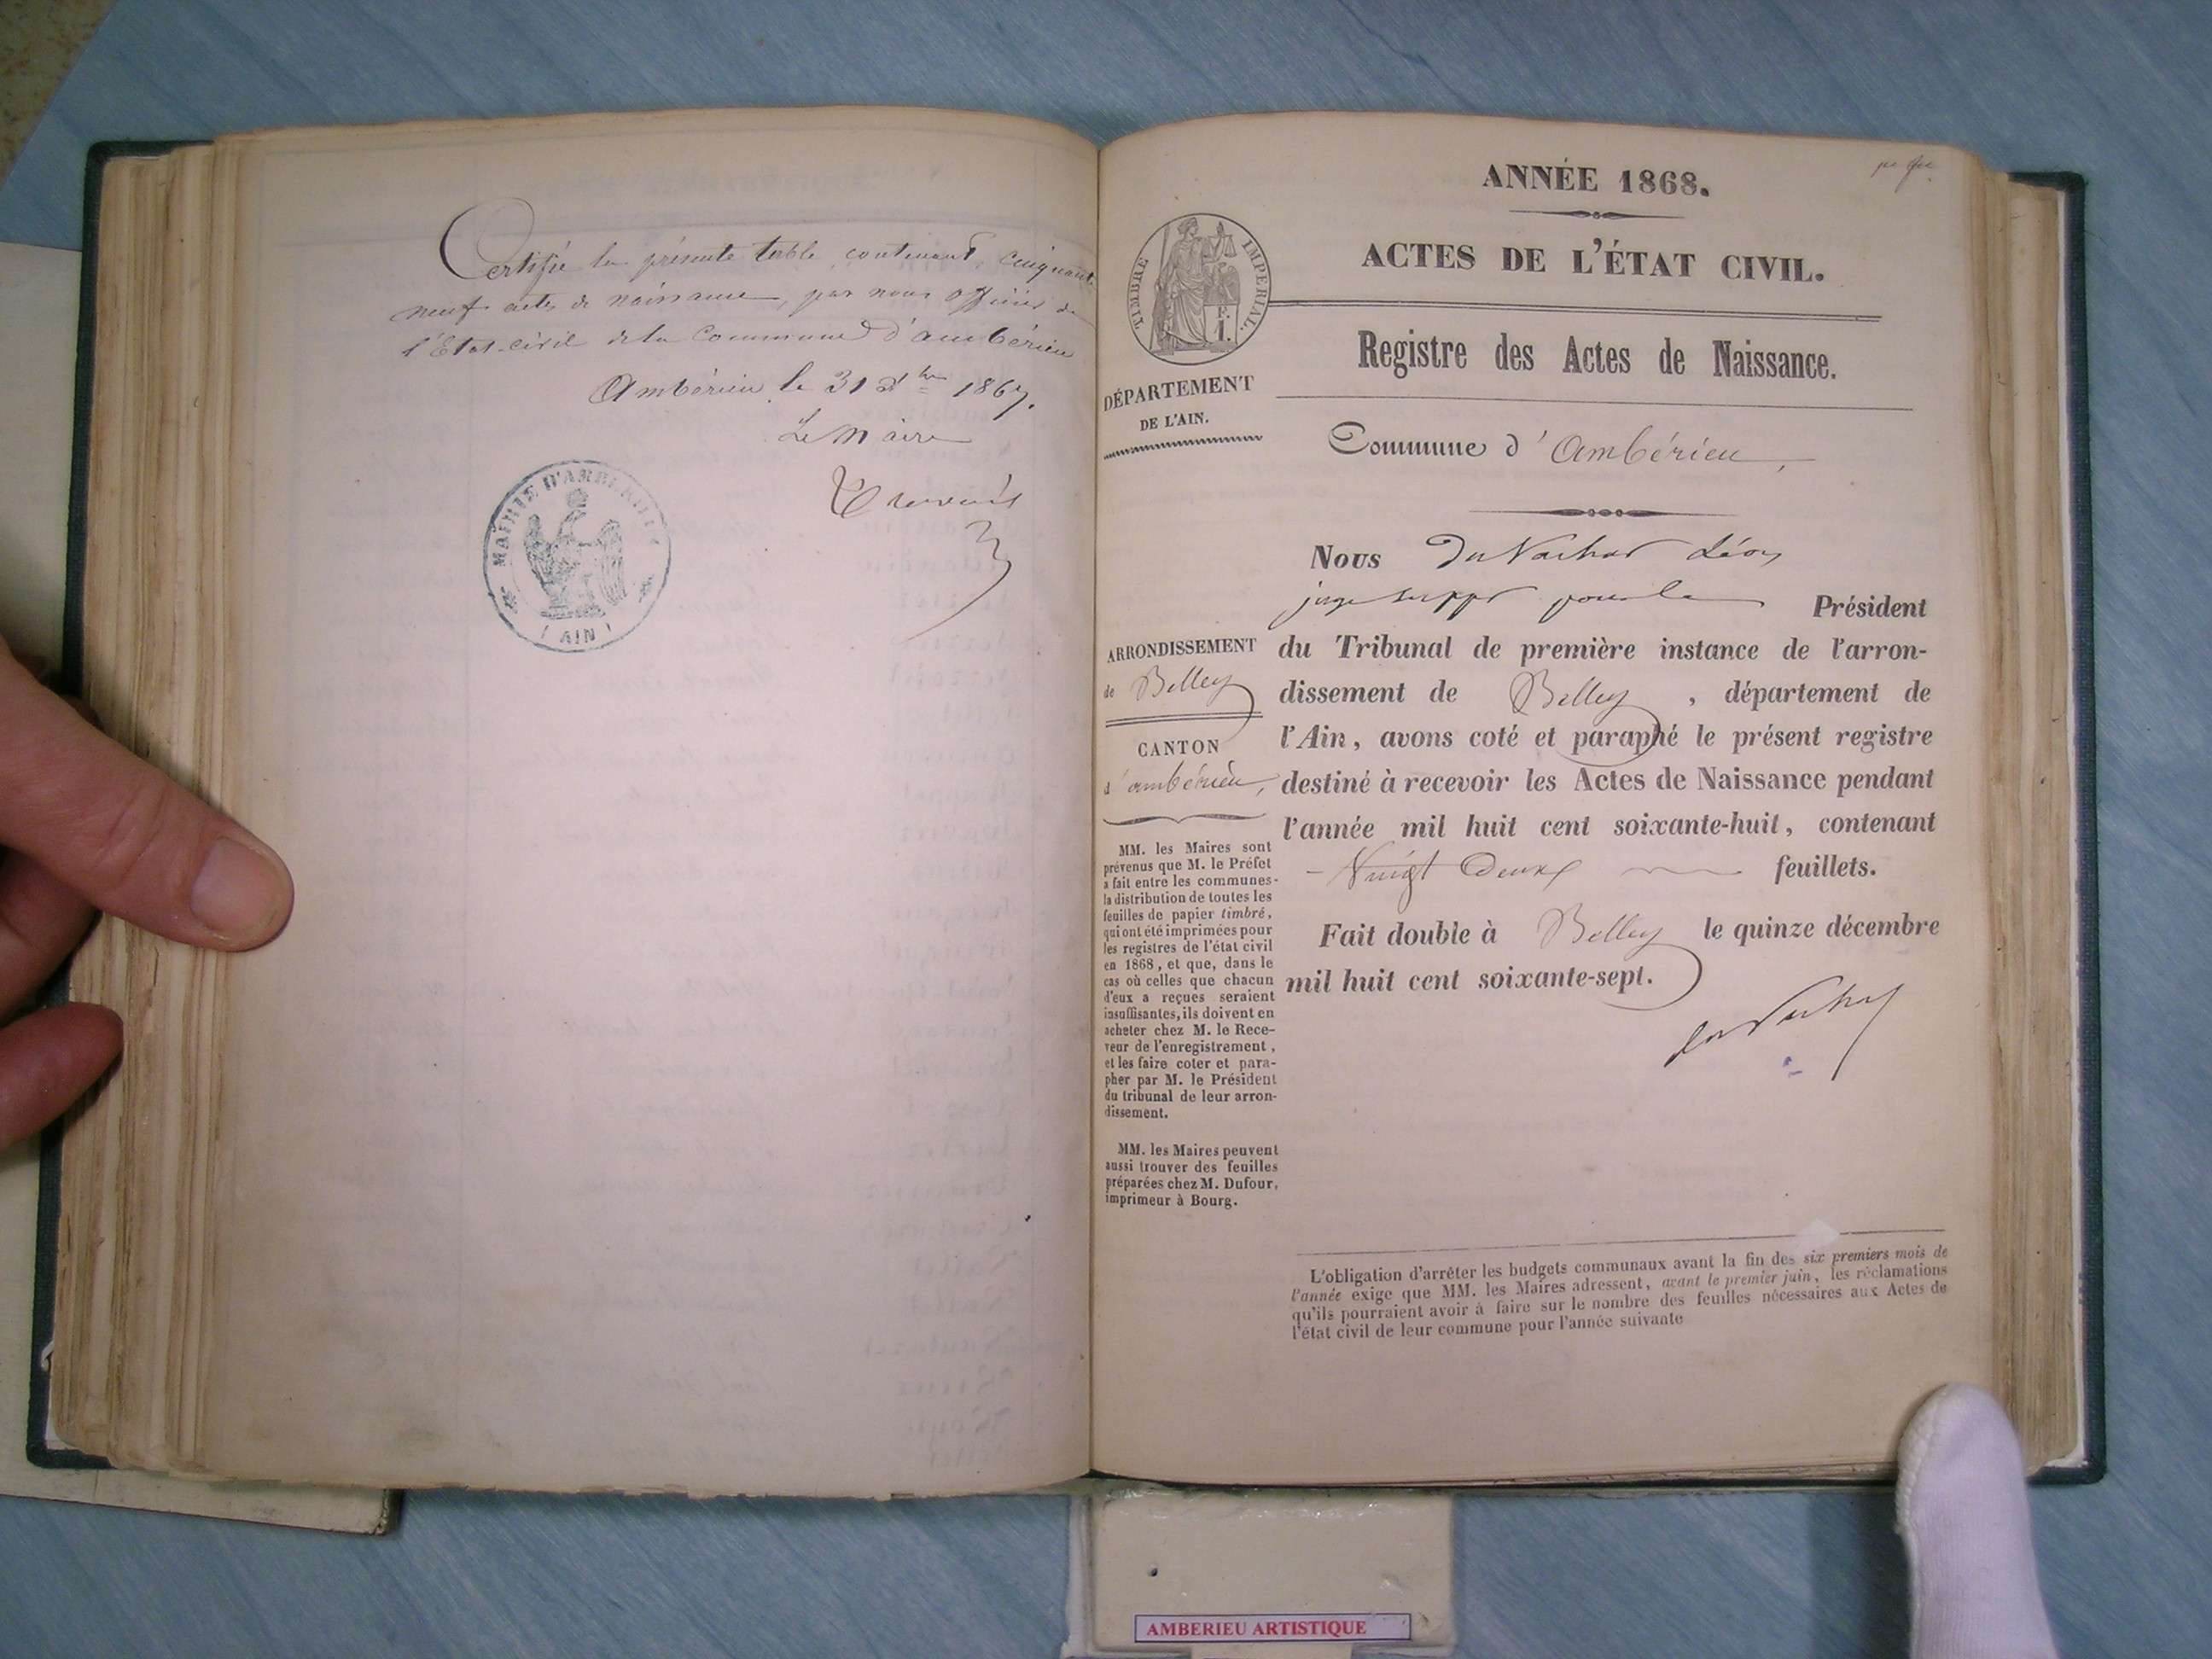 Certifié la présente table contenant cinquante
neuf actes de naissance, par nous officier de
l'Etat-civil de la Commune d'ambérieu
Ambérieu le 31 Xbre 1867.
Le Maire
MAIRIE D'AMBÉRIEU
(AIN)
ANNÉE 1868.
ACTES DE L'ÉTAT CIVIL.
TIMBRE IMPERIAL.
F.
1.
Registre des Actes de Naissance.
DÉPARTEMENT
DE L'AIN.
Commune d'Ambérieu,
Nous Du Vachat Léon
juge supp^t pour le Président
du Tribunal de première instance de l'arron-
dissement de Belley, département de
l'Ain, avons coté et paraphé le présent registre
destiné à recevoir les Actes de Naissance pendant
l'année mil huit cent soixante-huit, contenant
- Vingt Deux feuillets.
Fait double à Belley le quinze décembre
mil huit cent soixante-sept.
du Vachat
ARRONDISSEMENT
de Belley
CANTON
d'ambérieu,
MM. les Maires sont
prévenus que M. le Préfet
a fait entre les communes
la distribution de toutes les
feuilles de papier timbré,
qui ont été imprimées pour
les registres de l'état civil
en 1868, et que, dans le
cas où celles que chacun
d'eux a reçues seraient
insuffisantes, ils doivent en
acheter chez M. le Rece-
veur de l'enregistrement,
et les faire coter et para-
pher par M. le Président
du tribunal de leur arron-
dissement.
MM. les Maires peuvent
aussi trouver des feuilles
préparées chez M. Dufour,
imprimeur à Bourg.
L'obligation d'arrêter les budgets communaux avant la fin des six premiers mois de
l'année exige que MM. les Maires adressent, avant le premier juin, les réclamations
qu'ils pourraient avoir à faire sur le nombre des feuilles nécessaires aux Actes de
l'état civil de leur commune pour l'année suivante
AMBERIEU ARTISTIQUE